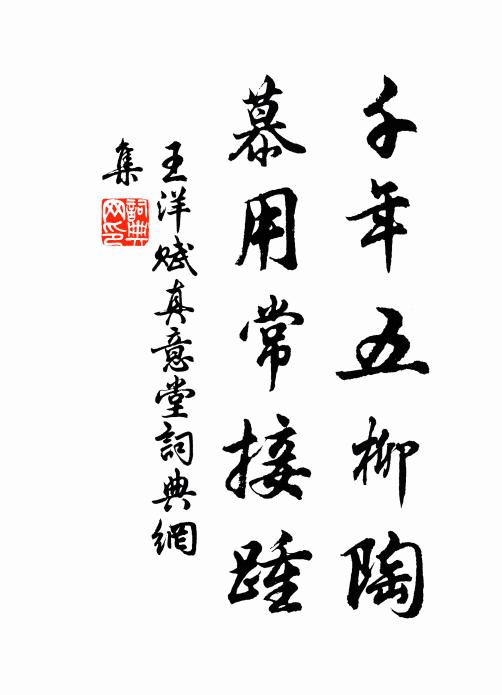 千年五柳陶
慕用常接踵
王洋赋真意堂詞典網
集
詞典
网印